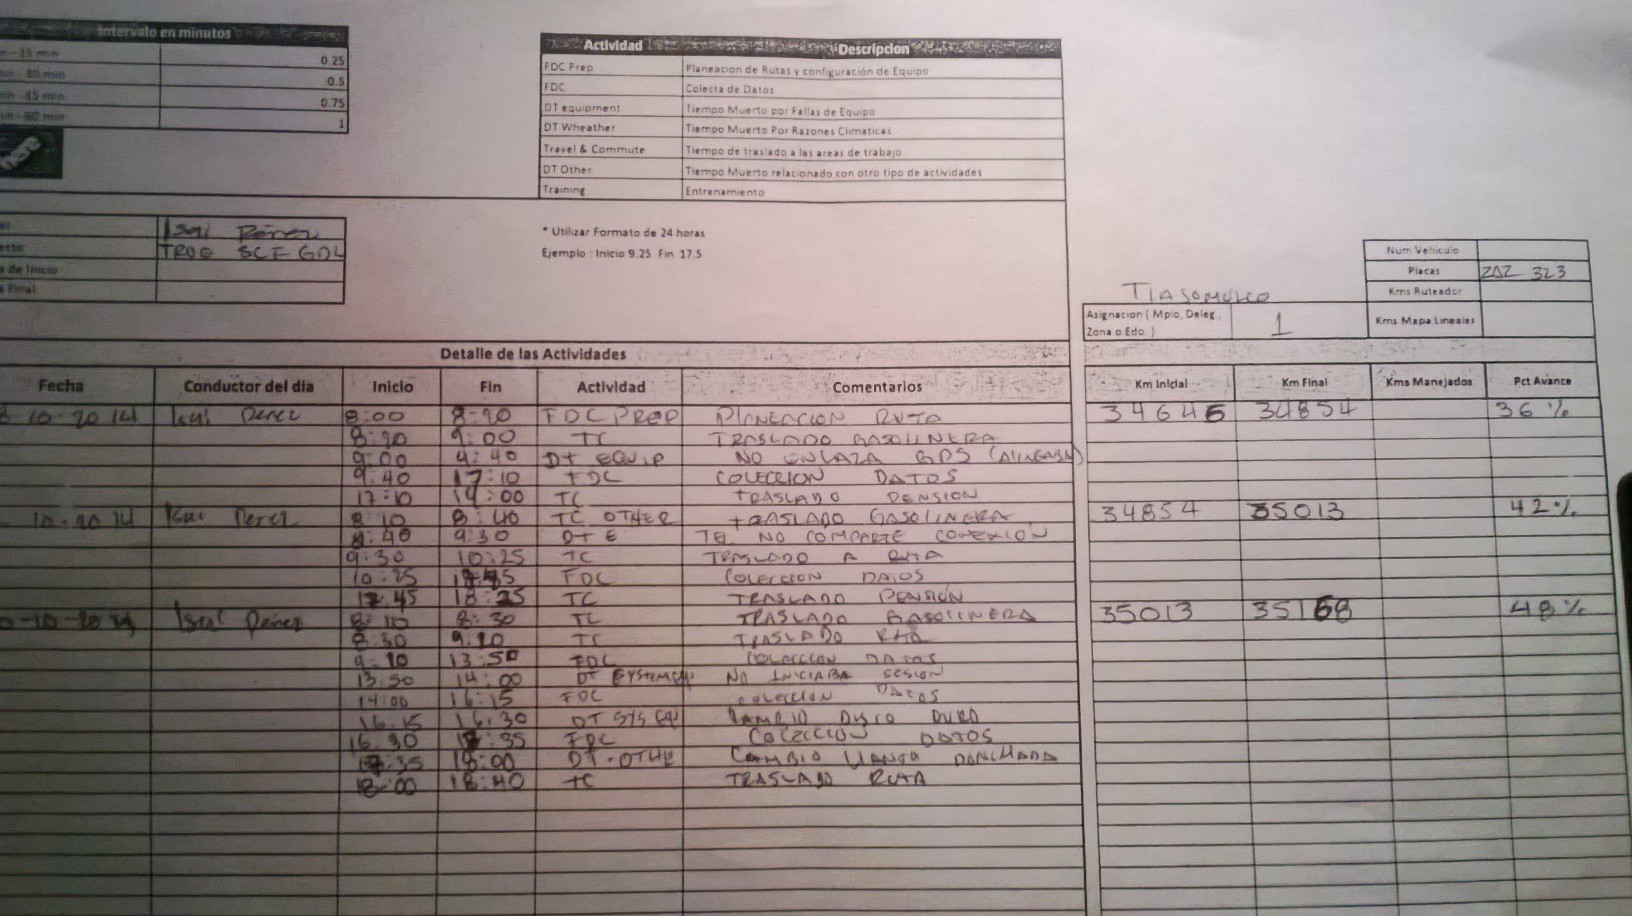 Intervalo en minutos
- 15 min 0.25
- 30 min 0.5
- 45 min 0.75
- 60 min 1
Actividad Descripcion
FDC Prep Planeacion de Rutas y configuración de Equipo
FDC Colecta de Datos
DT equipment Tiempo Muerto por Fallas de Equipo
DT Wheather Tiempo Muerto Por Razones Climaticas
Travel & Commute Tiempo de traslado a las areas de trabajo
DT Other Tiempo Muerto relacionado con otro tipo de actividades
Training Entrenamiento
Isai Pérez
TROG SCF GDL
a de Inicio
a Final
* Utilizar Formato de 24 horas
Ejemplo : Inicio 9.25 Fin 17.5
Num Vehiculo
Placas 323
Kms Ruteador
Kms Mapa Lineales
Asignacion ( Mpio, Deleg, Zona o Edo. ) 1
Detalle de las Actividades
Fecha Conductor del dia Inicio Fin Actividad Comentarios Km Inicial Km Final Kms Manejados Pct Avance
10-2014 Isai Perez 8:00 8:20 FDC PREP PLANEACION RUTA 34645 34854 36 %
8:20 9:00 TC TRASLADO GASOLINERA
9:00 9:40 DT EQUIP NO ENLAZA GPS
9:40 17:10 FDC COLECCION DATOS
17:10 :00 TC TRASLADO PENSION
10-2014 Isai Perez 8:10 8:40 TC OTHER TRASLADO GASOLINERA 34854 35013 42%
8:40 9:30 DT E NO COMPARTE CONEXION
9:30 10:25 TC TRASLADO A RUTA
10:25 FDC COLECCION DATOS
17:45 18:25 TC TRASLADO PENSIÓN
-10-20 Isai Perez 8:10 8:30 TC TRASLADO GASOLINERA 35013 35168 48%
8:30 9:20 TC TRASLADO RUTA
9:20 13:50 FDC COLECCION DATOS
13:50 14:00 DT NO INICIABA SESION
14:00 16:15 FDC COLECCION DATOS
16:15 16:30 DT SYS EQ CAMBIO DISCO DURO
16:30 17:35 FDC COLECCION DATOS
17:35 18:00 DT-OTHE CAMBIO LLANTA PONCHADA
18:00 18:40 TC TRASLADO RUTA